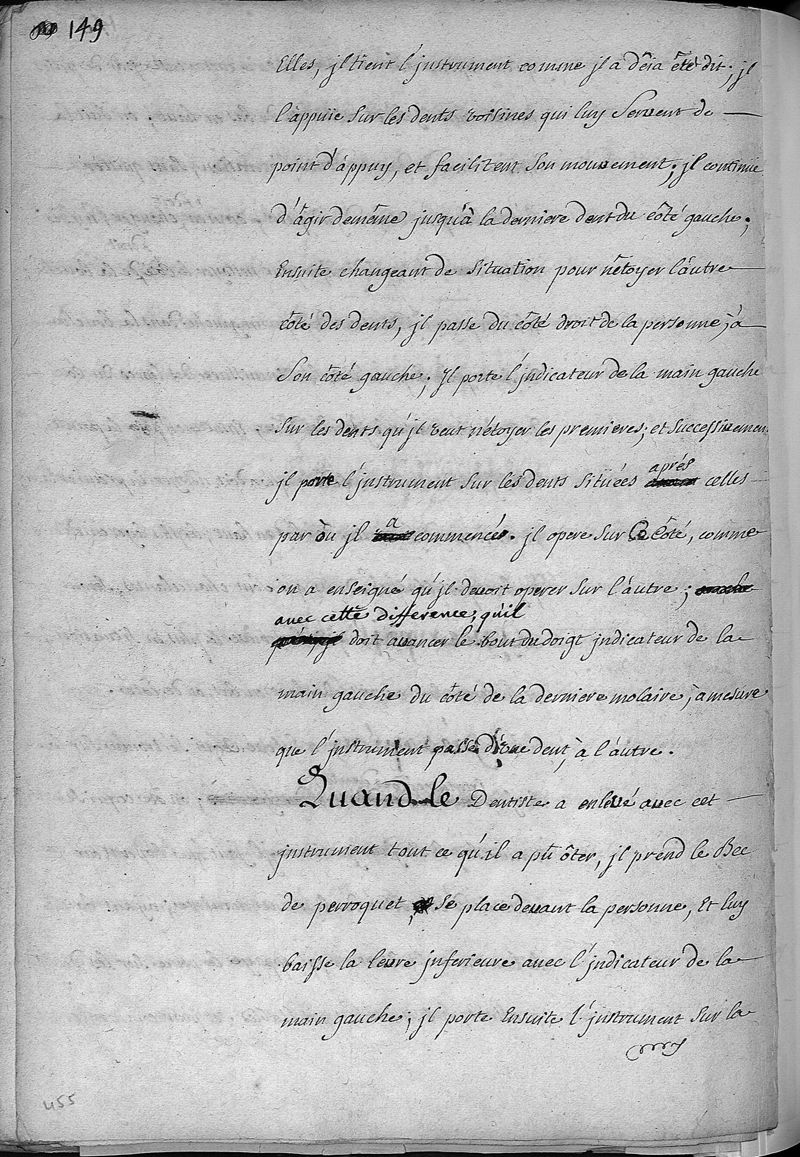 149
Elles, jl tient l'jnstrument comme jl a dêia êté dit; jl
l'appuie sur les dents voisines qui luy servent de
point d'appuy, et facilitent son mouvement; jl continue
d'âgir demême jusqu'à la derniere dent du côté gauche;
Ensuite changeant de situation pour nêtoyer l'autre
côté des dents, jl passe du côté droit de la personne, à
son côté gauche; Jl porte l'jndicateur de la main gauche
sur les dents qu'jl veut nétoyer les premieres; et successivement
après
jl porte l'jnstrument sur les dents situées celles
a
par où jl commencé. jl opere sur Ce côté, comme
on a enseigné qu'jl devoit operer sur l'autre;
avec cette difference, qu'il
doit avancer le bout du doigt jndicateur de la
main gauche du côté de la derniere molaire, à mesure
que l'jnstrument passe d'une dent, à l'autre.
Quand le Dentiste a enlevé avec cet
jnstrument tout ce qu'il a pû ôter, jl prend le Bec
de perroquet, se place devant la personne, Et luy
baisse la levre jnferieure avec l'jndicateur de la
main gauche; jl porte Ensuite l'jnstrument sur la
455